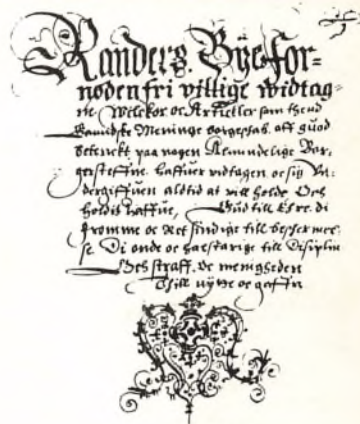 Randers. Bÿe for=
nøden fri villige widtag=
ne, Wilckor oc Artickler som thend
Raundske Meninge borgerskab. aff guod
betenckt paa nogen Almindelige Bor,
gersteffne. haffuer vidtagen oc sig Vn,
dergiffuen altid at vill holde Och
holdis haffue, Gud till Ere. di
fromme oc Ret sindige till beskermel,
se Di onde oc halstarige till Disiplin
Och straff. Oc menigheden
Thill nÿtte oc gaffn